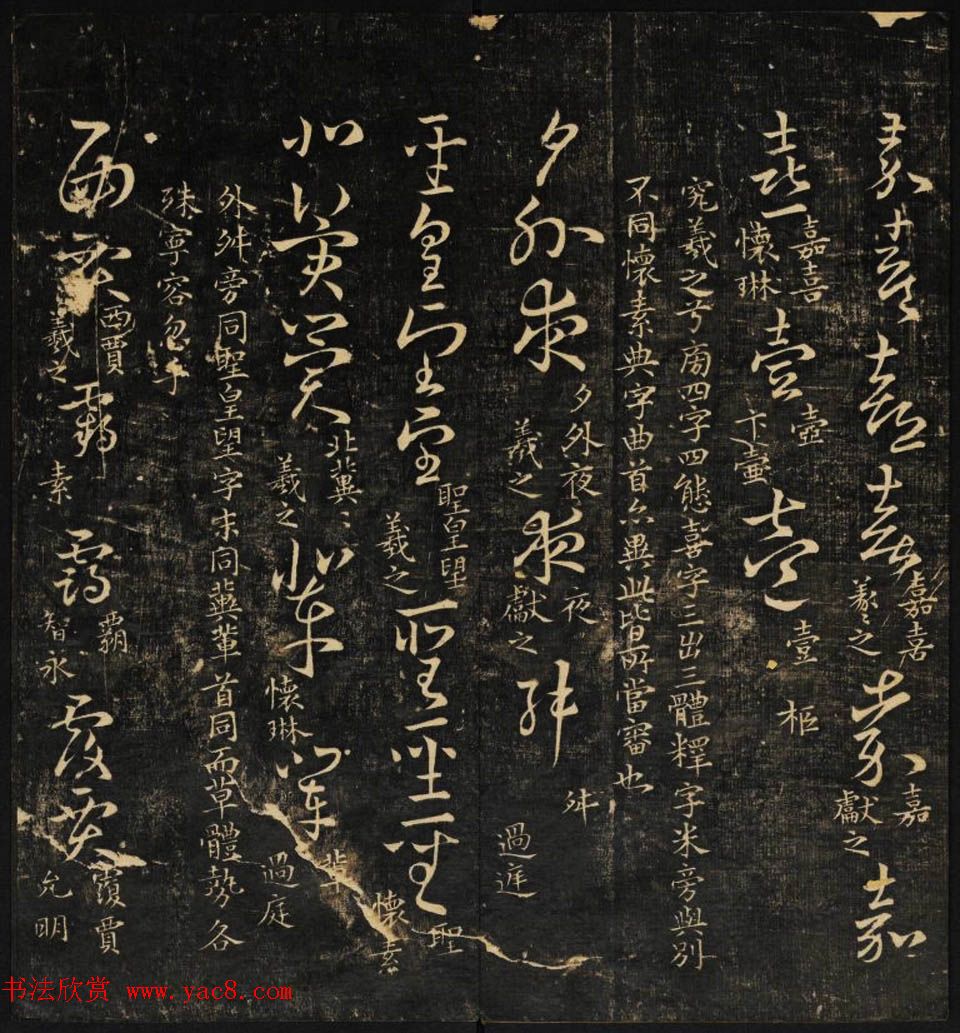 嘉喜喜喜嘉喜羲之嘉嘉獻之嘉
喜嘉喜懷琳壺壺卞壼壹壹柜
究羲之兮廟四字四態喜字三出三體釋字米旁與別
不同懷素典字曲首亦異此皆所當審也
夕外夜夕外夜羲之夜夜獻之舛舛過庭
聖皇望聖皇望羲之聖聖懷素
北冀北冀羲之輩懷琳輩輩過庭
外舛旁同聖皇望字末同冀輩首同而草體勢各
殊寧容忽乎
西賈西賈羲之霸素霸霸智永覆賈覆賈允明
书法欣赏 www.yac8.com